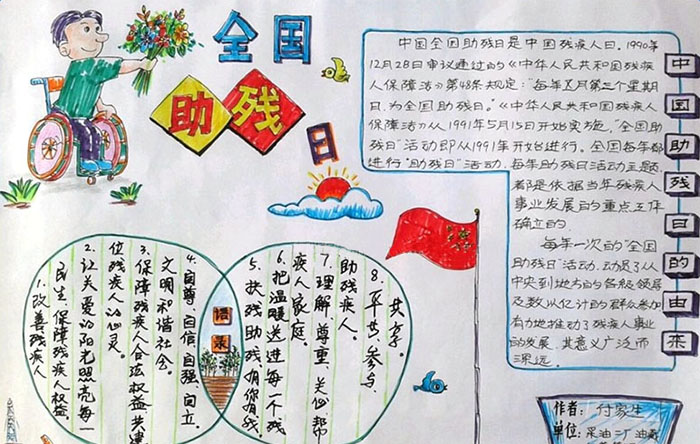 全国
助残
日
中国助残日的由来
中国全国助残日是中国残疾人日。1990年
12月28日审议通过的《中华人民共和国残疾
人保障法》第48条规定:"每年五月第三个星期
日,为全国助残日。"《中华人民共和国残疾人
保障法》从1991年5月15日开始实施,"全国助
残日"活动即从1991年开始进行。全国每年都
进行"助残日"活动,每年助残日活动主题
都是依据当年残疾人
事业发展的重点工作
确立的
每年一次的"全国
助残日"活动,动员了从
中央到地方的各级领导
及数以亿计的群众参加
有力地推动了残疾人事业
的发展,其意义广泛而
深远。
语录
1.改善残疾人
民生,保障残疾人权益。
2.让关爱的阳光照亮每一
位残疾人的心灵。
3.保障残疾人合法权益 共建
文明和谐社会
4.自尊、自信、自强、自立。
5.扶残助残,有你有我。
6.把温暖送进每一个残
疾人家庭。
7.理解、尊重、关心、帮
助残疾人。
8.平等、参与、
共享。
作者:付家生
单位:采油